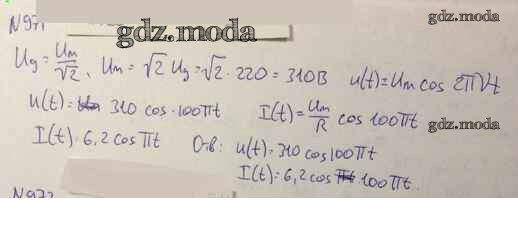 N971
gdz.moda
gdz.moda
Ug = Um/√2, Um = √2 Ug = √2 · 220 = 310В u(t) = Um cos 2πνt
u(t) = 310 cos · 100πt I(t) = Um/R cos 100πt gdz.moda
I(t) · 6,2 cos πt О-в: u(t) = 310 cos 100πt
I(t) = 6,2 cos 100πt.
N972